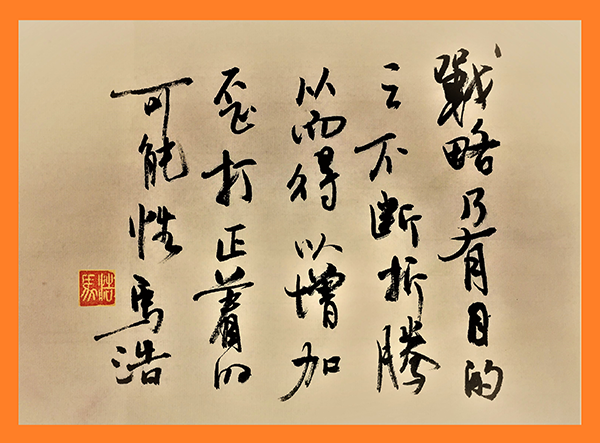 戰略乃有目的
之不断折騰
从而得以增加
歪打正着的
可能性 馬浩